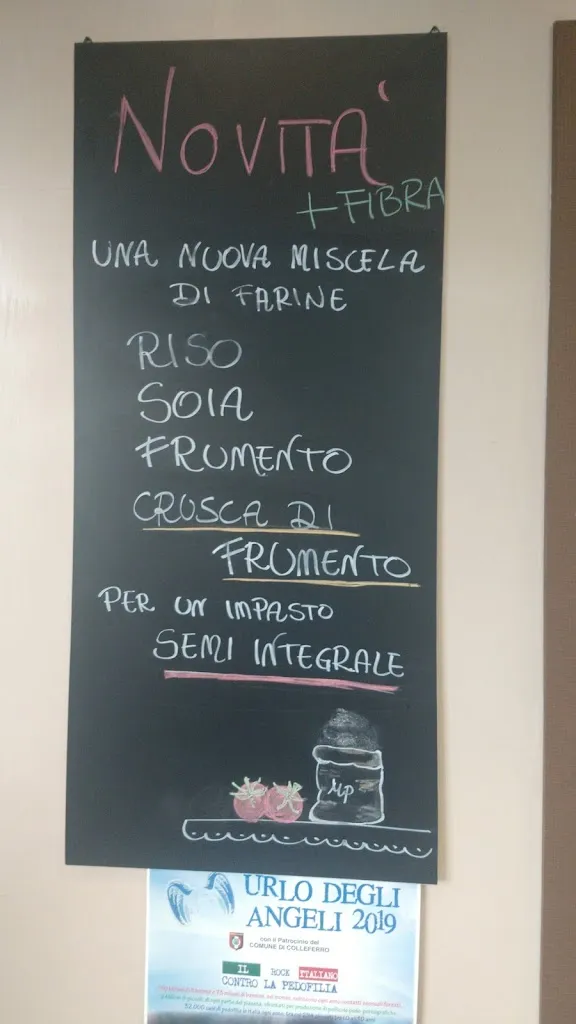 NOVITA'
+FIBRA
UNA NUOVA MISCELA
DI FARINE
RISO
SOIA
FRUMENTO
CRUSCA DI
FRUMENTO
PER UN IMPASTO
SEMI INTEGRALE
URLO DEGLI
ANGELI 2019
con il Patrocinio del
COMUNE DI COLLEFERRO
IL ROCK ITALIANO
CONTRO LA PEDOFILIA